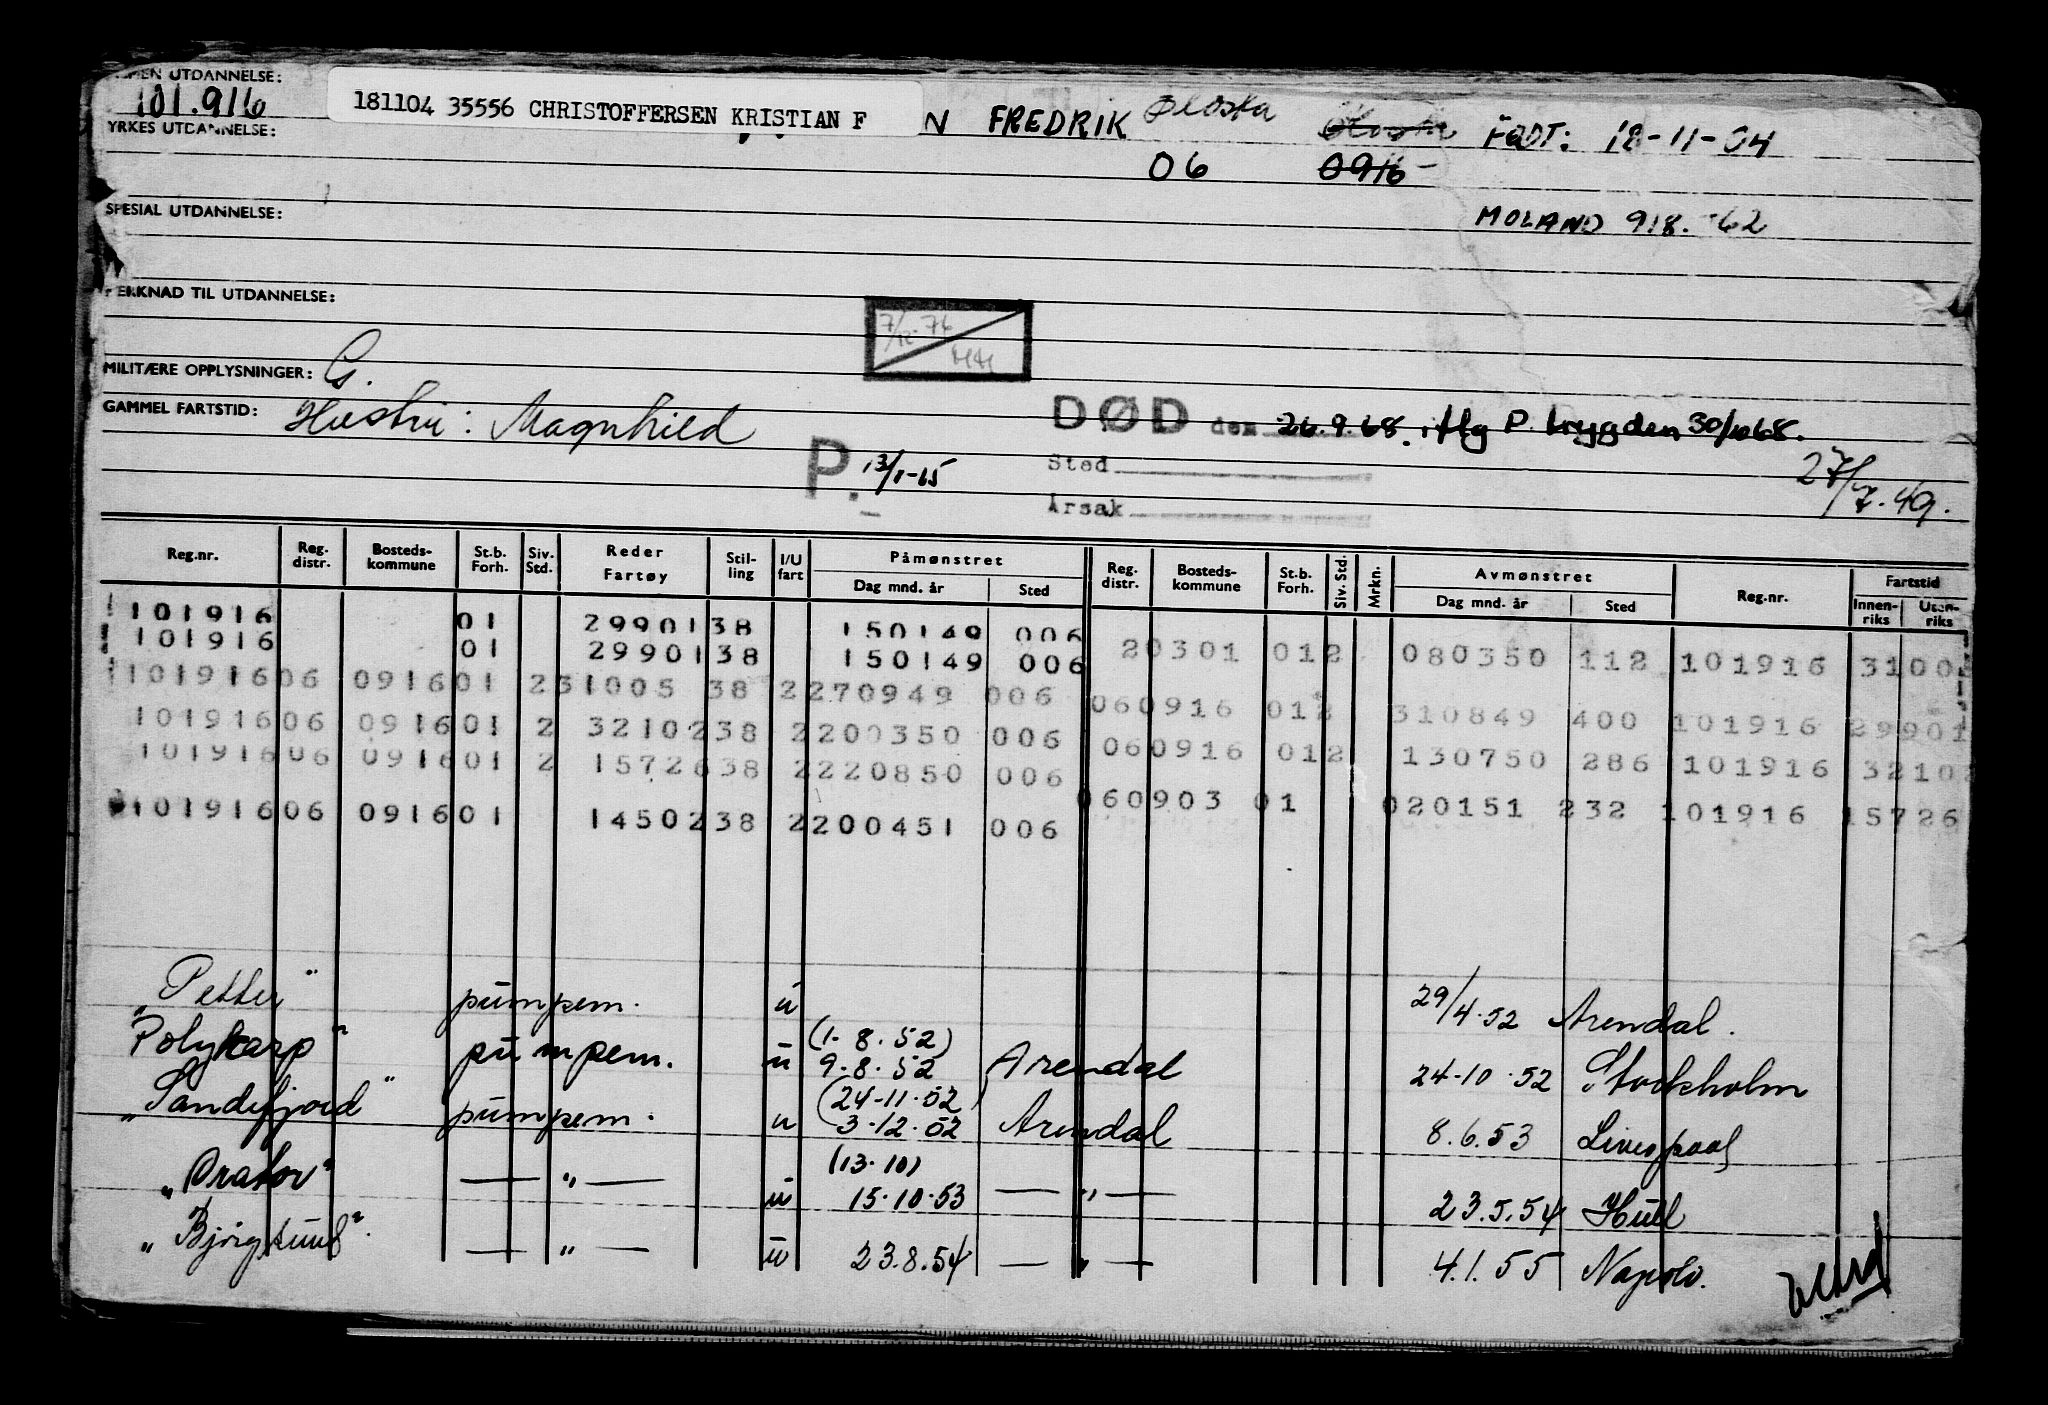 ALMEN UTDANNELSE:
101.916
181104 35556 CHRISTOFFERSEN KRISTIAN F
N FREDRIK Flosta FØDT: 18-11-04
YRKES UTDANNELSE:
06 0916
SPESIAL UTDANNELSE:
MOLAND 918. -62
MERKNAD TIL UTDANNELSE:
7/12-76
HH
MILITÆRE OPPLYSNINGER: G.
GAMMEL FARTSTID: Hustru: Magnhild
DØD den 26.9.68. iflg P. trygden 30/10 68.
P. 13/1-65
Sted
27/7.49.
Årsak
Reg.nr. Reg. distr. Bosteds- kommune St.b. Forh. Siv. Std. Reder Fartøy Stil- ling I/U fart Påmønstret Dag mnd. år Sted Reg. distr. Bosteds- kommune St.b. Forh. Siv. Std. Mrkn. Avmønstret Dag mnd. år Sted Reg.nr. Fartstid Innen- riks Uten- riks
101916 01 2990138 150149 006
101916 01 2990138 150149 006 20301 012 080350 112 101916 31005
10191606 091601 231005 38 2270949 006 060916 012 310849 400 101916 29901
10191606 091601 2 3210238 2200350 006 060916 012 130750 286 101916 32102
10191606 091601 2 1572638 2220850 006 060903 01 020151 232 101916 15726
10191606 091601 1450238 2200451 006
"Petter" pumpem. u 29/4.52 Arendal.
Polykarp" pumpem. u (1.8.52) 9.8.52 Arendal 24-10.52 Stockholm
"Sandefjord" pumpem. u (24-11.52) 3.12.52 Arendal 8.6.53 Liverpool
"Orator" — " — u (13.10) 15.10.53 — " — 23.5.54 Hull
"Bjørghund". — " — u 23.8.54 — " — 4.1.55 Napoli.